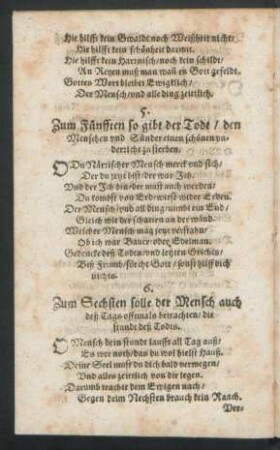 Hie hilfft kein Gewalt noch Weißheit nicht/
Hie hilfft kein schönheit darmit.
Hie hilfft kein Harnisch/noch kein schildt/
An Reyen muß man waß es Gott gefeldt.
Gottes Wort bleibet Ewigklich/
Der Mensch/vnd alle ding zeitlich.
5.
Zum Fünfften so gibt der Todt/den
Menschen vnd Sünder einen schönen vn-
derricht zu sterben.
O Du Närrischer Mensch merck vnd sich/
Der du jetzt bist/der war Ich.
Vnd der Ich bin/der must auch werden/
Du kombst von Erd wirst wider Erden.
Der Mensch/vnd all ding/nimbt ein End/
Gleich wie der schatten an der wänd.
Welcher Mensch mag jetzt verstahn/
Ob ich war Bauer/oder Edelman.
Gedencke deß Todes/vnd letzten Gricht/
Biß Fromb/förcht Gott/sonst hilff dich
nichts.
6.
Zum Sechsten solle der Mensch auch
deß Tags offtmals betrachten/die
stunde deß Todts.
O Mensch dein stunde laufft all Tag auß/
Es wer noth/das du wol hielst Hauß.
Deine Seel must du dich bald verwegen/
Vnd alles zeitlich von dir legen.
Darumb trachte dem Ewigen nach/
Gegen deim Nechsten brauch kein Raach.
Ver-